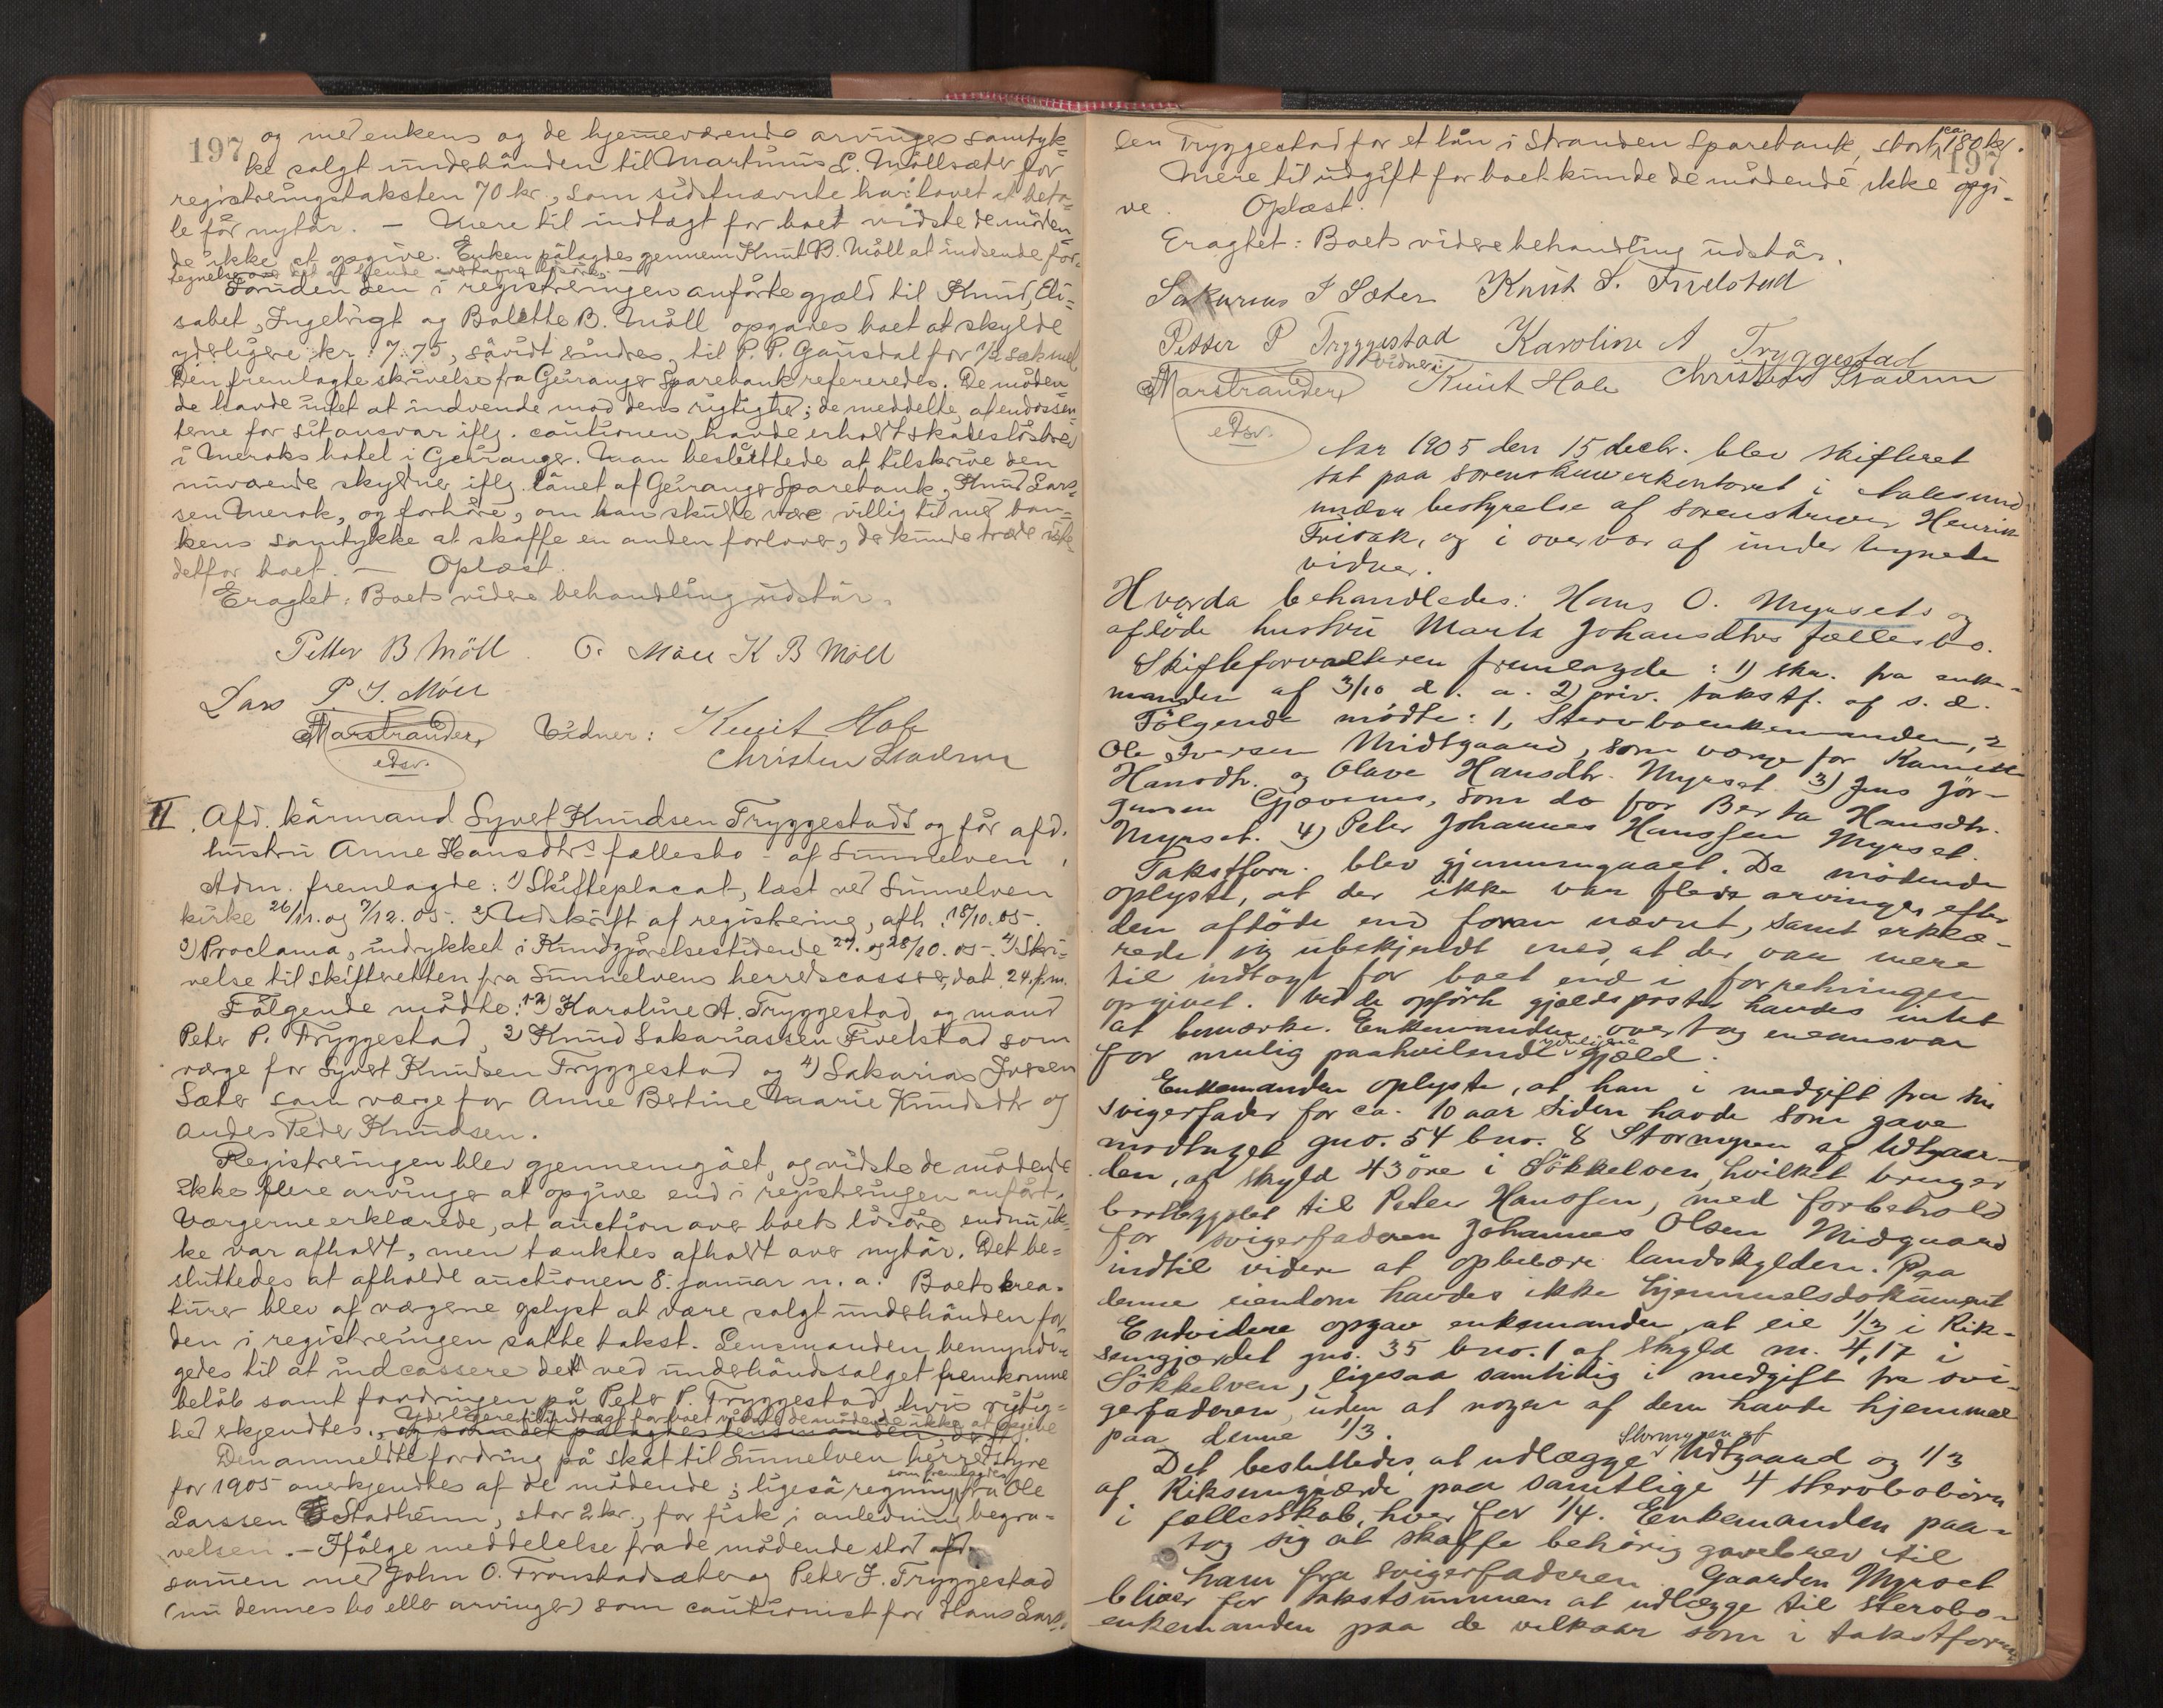 197
og med enkens og de hjemmeværende arvinges samtyk-
ke salgt underhånden til Martinus E. Möllsæter for
registreringstaksten 70 kr., som sidstnævnte har lovet at beta-
le før nytår. — Mere til indtægt for boet vidste de møden-
de ikke at opgive. Enken pålagdes gjennem Knut B. Möll at indsende for-
tegnelse over
Foruden den i registreringen anførte gjæld til Knud, Eli-
sabet, Ingebrigt og Bolette B. Möll opgaves boet at skylde
yderligere kr. 7.75, såvidt erindres, til P. P. Gausdal for 1/2 sæk mel
Den fremlagte skrivelse fra Geiranger Sparebank refereredes. De møden-
de havde intet at indvende mod dens rigtighed; de meddelte, at endossen-
terne for sit ansvar iflg. cautionen havde erholdt skadesløsbrev
i Meroks hotel i Geiranger. Man besluttede at tilskrive den
nuværende skyldner iflg. lånet af Geiranger Sparebank, Knud Lars-
sen Merok, og forhøre, om han skulde være villig til med ban-
kens samtykke at skaffe en anden forlover, der kunde træde iste-
detfor boet. — Oplæst.
Eragtet: Boets videre behandling udstår.
Petter B Möll. O. Möll K B Möll
Lars P. J. Möll
Marstrander, Vidner: Knut Hole
edsv. Christen Stadeim
II. Afd. kårmand Syver Knudsen Tryggestads og før afd.
hustru Anne Hansdtrs fællesbo - af Sunnelven,
Adm. fremlagde: 1) Skifteplacat, læst ved Sunnelven
kirke 26/11. og 3/12. 05. 2) Udskrift af registrering, afh. 18/10. 05.
3) Proclama, indrykket i Kundgjørelsestidende 27. og 28/10. 05. 4) Skri-
velse til skifteretten fra Sunnelvens herredscasserer, dat. 24. f. m.
Følgende mødte: 1-2) Karoline A. Tryggestad og mand
Peter P. Tryggestad, 3) Knud Sakariassen Fivelstad som
værge for Syver Knudsen Tryggestad og 4) Sakarias Iversen
Sæter som værge for Anne Bertine Marie Knudsdtr og
Anders Peder Knudsen.
Registreringen blev gjennemgået, og vidste de mødende
ikke flere arvinger at opgive end i registreringen anført.
Værgerne erklærede, at auction over boets løsøre endnu ik-
ke var afholdt, men tænktes afholdt over nytår. Det be-
sluttedes at afholde auctionen 8. januar n. a. Boets krea-
turer blev af værgerne oplyst at være solgt underhånden for
den i registreringen satte takst. Lensmanden bemyndi-
gedes til at indcassere det ved underhåndssalget fremkomne
beløb samt fordringen på Peter P. Tryggestad, hvis rigtig-
Yderligere til indtægt for boet vidste de mødende ikke at opgive
hed erkjendtes., og som det pålagdes lensmanden, der
Den anmeldte fordring på skat til Sunnelven herredstyre
for 1905 anerkjendtes af de mødende; ligeså regning, som fremlagdes, fra Ole
Larssen Stadheim, stor 2 kr., for fisk i anledning begra-
velsen. — Ifølge meddelelse fra de mødende stod afd.
sammen med John O. Tronstadsæter og Peter J. Tryggestad
(nu dennes bo eller arvinger) som cautionist for Hans Lars-
197
sen Tryggestad for et lån i Stranden Sparebank, stort ca. 180 kr.
Mere til udgift for boet kunde de mødende ikke opgi-
ve. Oplæst.
Eragtet: Boets videre behandling udstår.
Sakarias I Sæter Knut S. Fivelstad
Petter P Tryggestad Karoline A Tryggestad
Marstrander, Vidner: Knut Hole Christen Stadeim
edsv.
Aar 1905 den 15 decbr. blev skifteret
sat paa sorenskriverkontoret i Aalesund
under bestyrelse af sorenskriver Henrik
Frisak, og i overvær af undertegnede
vidner.
Hvorda behandledes: Hans O. Myrsets og
afdöde hustru Marta Johansdtrs fællesbo.
Skifteforvalteren fremlagde: 1) skr. fra enke-
manden af 3/10 d. a. 2) priv. takstf. af s. d.
Fölgende mödte: 1, Sterboenkemanden, 2
Ole Iversen Midtgaard, som værge for Kamille
Hansdtr. og Olave Hansdtr. Myrset 3) Jens Jör-
gensen Gjævenes, som do for Berta Hansdtr.
Myrset. 4) Peter Johannes Hanssen Myrset.
Takstforr. blev gjennemgaaet. De mödende
oplyste, at der ikke var flere arvinger efter
den afdöde end foran nævnt, samt erklæ-
rede sig ubekjendt med, at der var mere
til indtægt for boet end i forretningen
opgivet. Ved de opförte gjældsposter havdes intet
at bemærke. Enkemanden overtog eneansvar
for mulig paahvilende yderligere gjæld.
Enkemanden oplyste, at han i medgift fra sin
svigerfader for ca. 10 aar siden havde som gave
modtaget gno. 54 bno. 8 Stormyren af Udtgaar-
den, af skyld 43 öre i Sökkelven, hvilket bruger
bortbygslet til Peter Hanssen, med forbehold
for svigerfaderen Johannes Olsen Midgaard
indtil videre at oppebære landskylden. Paa
denne eiendom havdes ikke hjemmelsdokument
Endvidere opgav enkemanden at eie 1/3 i Rik-
semgjærdet gno. 35 bno. 1 af skyld m. 4,17 i
Sökkelven, ligesaa samtidig i medgift fra svi-
gerfaderen, uden at nogen af dem havde hjemmel
paa denne 1/3.
Det besluttedes at udlægge Stormyren af Udtgaard og 1/3
af Riksemgjærde paa samtlige 4 sterbobörn
i fællesskab, hver for 1/4. Enkemanden paa-
tog sig at skaffe behörig gavebrev til
ham fra svigerfaderen. Gaarden Myrset
bliver for takstsummen at udlægge til sterbo-
enkemanden paa de vilkaar som i takstforr.